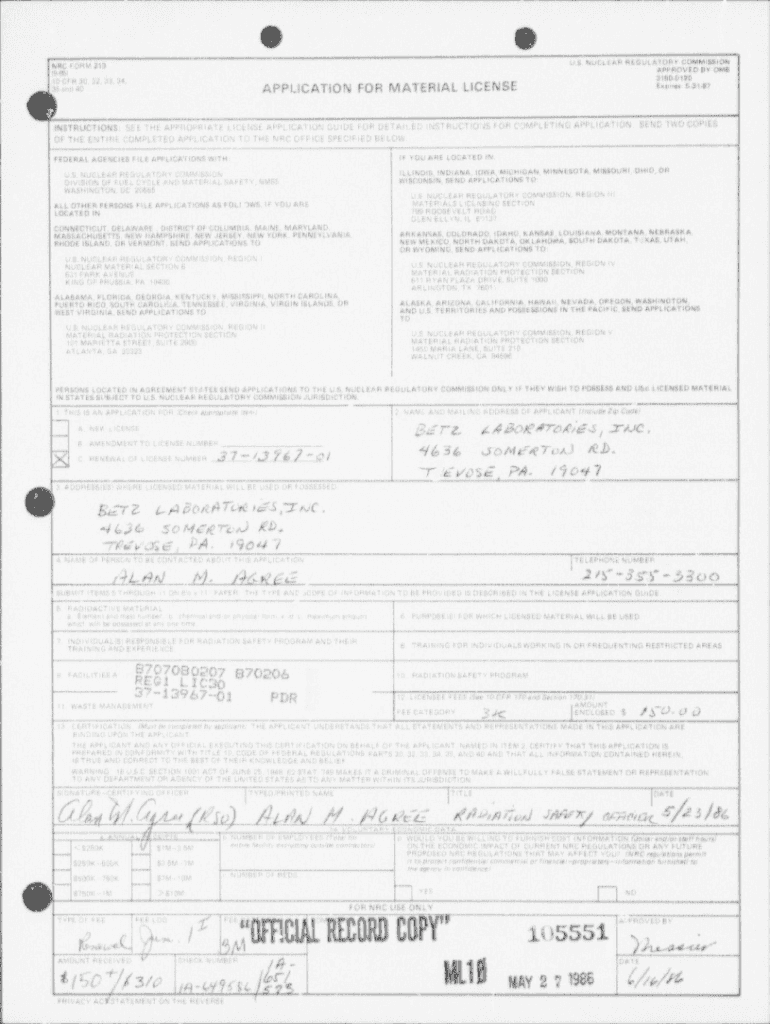 NRC FORM 313
10 CFR 30, 32, 33, 34,
35 and 40
U.S. NUCLEAR REGULATORY COMMISSION
APPROVED BY OMB
3150-0120
Expires: 5-31-87
APPLICATION FOR MATERIAL LICENSE
INSTRUCTIONS: SEE THE APPROPRIATE LICENSE APPLICATION GUIDE FOR DETAILED INSTRUCTIONS FOR COMPLETING APPLICATION. SEND TWO COPIES
OF THE ENTIRE COMPLETED APPLICATION TO THE NRC OFFICE SPECIFIED BELOW.
FEDERAL AGENCIES FILE APPLICATIONS WITH:
U.S. NUCLEAR REGULATORY COMMISSION
DIVISION OF FUEL CYCLE AND MATERIAL SAFETY, NMSS
WASHINGTON, DC 20555
ALL OTHER PERSONS FILE APPLICATIONS AS FOLLOWS, IF YOU ARE
LOCATED IN:
CONNECTICUT, DELAWARE, DISTRICT OF COLUMBIA, MAINE, MARYLAND,
MASSACHUSETTS, NEW HAMPSHIRE, NEW JERSEY, NEW YORK, PENNSYLVANIA,
RHODE ISLAND, OR VERMONT, SEND APPLICATIONS TO:
U.S. NUCLEAR REGULATORY COMMISSION, REGION I
NUCLEAR MATERIAL SECTION B
631 PARK AVENUE
KING OF PRUSSIA, PA 19406
ALABAMA, FLORIDA, GEORGIA, KENTUCKY, MISSISSIPPI, NORTH CAROLINA,
PUERTO RICO, SOUTH CAROLINA, TENNESSEE, VIRGINIA, VIRGIN ISLANDS, OR
WEST VIRGINIA, SEND APPLICATIONS TO:
U.S. NUCLEAR REGULATORY COMMISSION, REGION II
MATERIAL RADIATION PROTECTION SECTION
101 MARIETTA STREET, SUITE 2900
ATLANTA, GA 30323
IF YOU ARE LOCATED IN:
ILLINOIS, INDIANA, IOWA, MICHIGAN, MINNESOTA, MISSOURI, OHIO, OR
WISCONSIN, SEND APPLICATIONS TO:
U.S. NUCLEAR REGULATORY COMMISSION, REGION III
MATERIALS LICENSING SECTION
799 ROOSEVELT ROAD
GLEN ELLYN, IL 60137
ARKANSAS, COLORADO, IDAHO, KANSAS, LOUISIANA, MONTANA, NEBRASKA,
NEW MEXICO, NORTH DAKOTA, OKLAHOMA, SOUTH DAKOTA, TEXAS, UTAH,
OR WYOMING, SEND APPLICATIONS TO:
U.S. NUCLEAR REGULATORY COMMISSION, REGION IV
MATERIAL RADIATION PROTECTION SECTION
611 RYAN PLAZA DRIVE, SUITE 1000
ARLINGTON, TX 76011
ALASKA, ARIZONA, CALIFORNIA, HAWAII, NEVADA, OREGON, WASHINGTON,
AND U.S. TERRITORIES AND POSSESSIONS IN THE PACIFIC, SEND APPLICATIONS
TO:
U.S. NUCLEAR REGULATORY COMMISSION, REGION V
MATERIAL RADIATION PROTECTION SECTION
1450 MARIA LANE, SUITE 210
WALNUT CREEK, CA 94596
PERSONS LOCATED IN AGREEMENT STATES SEND APPLICATIONS TO THE U.S. NUCLEAR REGULATORY COMMISSION ONLY IF THEY WISH TO POSSESS AND USE LICENSED MATERIAL
IN STATES SUBJECT TO U.S. NUCLEAR REGULATORY COMMISSION JURISDICTION.
1. THIS IS AN APPLICATION FOR (Check appropriate item)
A. NEW LICENSE
B. AMENDMENT TO LICENSE NUMBER
X C. RENEWAL OF LICENSE NUMBER 37-13967-01
2. NAME AND MAILING ADDRESS OF APPLICANT (Include Zip Code)
BETZ LABORATORIES, INC.
4636 SOMERTON RD.
TREVOSE, PA. 19047
3. ADDRESS(ES) WHERE LICENSED MATERIAL WILL BE USED OR POSSESSED
BETZ LABORATORIES, INC.
4636 SOMERTON RD.
TREVOSE, PA. 19047
4. NAME OF PERSON TO BE CONTACTED ABOUT THIS APPLICATION
ALAN M. AGREE
TELEPHONE NUMBER
215-355-3300
SUBMIT ITEMS 5 THROUGH 11 ON 8½ x 11" PAPER. THE TYPE AND SCOPE OF INFORMATION TO BE PROVIDED IS DESCRIBED IN THE LICENSE APPLICATION GUIDE.
5. RADIOACTIVE MATERIAL
a. Element and mass number, b. chemical and/or physical form, and c. maximum amount
which will be possessed at any one time.
6. PURPOSE(S) FOR WHICH LICENSED MATERIAL WILL BE USED.
7. INDIVIDUAL(S) RESPONSIBLE FOR RADIATION SAFETY PROGRAM AND THEIR
TRAINING AND EXPERIENCE.
8. TRAINING FOR INDIVIDUALS WORKING IN OR FREQUENTING RESTRICTED AREAS.
9. FACILITIES A
8707080207 870206
REG1 LIC30
37-13967-01 PDR
10. RADIATION SAFETY PROGRAM.
11. WASTE MANAGEMENT.
12. LICENSEE FEES (See 10 CFR 170 and Section 170.31)
FEE CATEGORY
AMOUNT
ENCLOSED $ 150.00
13. CERTIFICATION. (Must be completed by applicant) THE APPLICANT UNDERSTANDS THAT ALL STATEMENTS AND REPRESENTATIONS MADE IN THIS APPLICATION ARE
BINDING UPON THE APPLICANT.
THE APPLICANT AND ANY OFFICIAL EXECUTING THIS CERTIFICATION ON BEHALF OF THE APPLICANT, NAMED IN ITEM 2, CERTIFY THAT THIS APPLICATION IS
PREPARED IN CONFORMITY WITH TITLE 10, CODE OF FEDERAL REGULATIONS, PARTS 30, 32, 33, 34, 35, AND 40 AND THAT ALL INFORMATION CONTAINED HEREIN,
IS TRUE AND CORRECT TO THE BEST OF THEIR KNOWLEDGE AND BELIEF.
WARNING: 18 U.S.C. SECTION 1001 ACT OF JUNE 25, 1948, 62 STAT. 749 MAKES IT A CRIMINAL OFFENSE TO MAKE A WILLFULLY FALSE STATEMENT OR REPRESENTATION
TO ANY DEPARTMENT OR AGENCY OF THE UNITED STATES AS TO ANY MATTER WITHIN ITS JURISDICTION.
SIGNATURE-CERTIFYING OFFICER
TYPED/PRINTED NAME
TITLE
DATE
Alan M. Agree (RSO) ALAN M. AGREE RADIATION SAFETY OFFICER 5/23/86
14. VOLUNTARY ECONOMIC DATA
a. ANNUAL RECEIPTS
<$250K
$1M-3.5M
$250K-500K
$3.5M-7M
$500K-750K
$7M-10M
$750K-1M
>$10M
b. NUMBER OF EMPLOYEES (Total for
entire facility excluding outside contractors)
NUMBER OF BEDS
c. WOULD YOU BE WILLING TO FURNISH COST INFORMATION (dollar and/or staff hours)
ON THE ECONOMIC IMPACT OF CURRENT NRC REGULATIONS OR ANY FUTURE
PROPOSED NRC REGULATIONS THAT MAY AFFECT YOU? (NRC regulations permit
it to protect confidential commercial or financial-proprietary-information furnished to
the agency in confidence)
YES
NO
FOR NRC USE ONLY
TYPE OF FEE
Renewal
FEE LOG
Jun. 1 I
3M
"OFFICIAL RECORD COPY"
105551
APPROVED BY
Messier
AMOUNT RECEIVED
$150+/$310
CHECK NUMBER
ML10
MAY 27 1986
DATE
6/16/86
PRIVACY ACT STATEMENT ON THE REVERSE